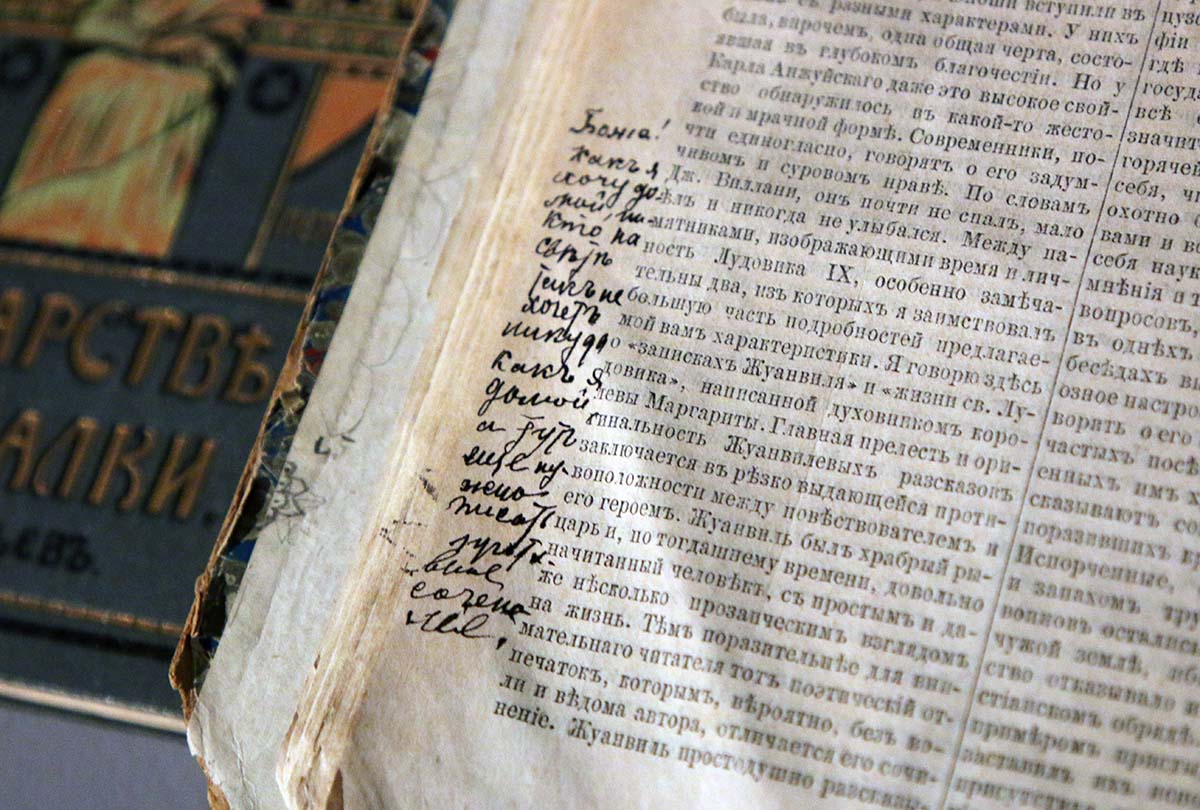 АРСТВѢ
АЛКИ.
ЬЕВЪ.
какъ я
хочу до
мой ни-
кто на
свѣтѣ
такъ не
хочетъ
никуда
какъ я
домой,
а тутъ
еще ну-
жно
писать
съ разными характерами. У нихъ
была, впрочемъ, одна общая черта, состо-
явшая въ глубокомъ благочестіи. Но у
Карла Анжуйскаго даже это высокое свой-
ство обнаружилось въ какой-то жесто-
кой и мрачной формѣ. Современники, по-
чти единогласно, говорятъ о его задум-
чивомъ и суровомъ нравѣ. По словамъ
Дж. Виллани, онъ почти не спалъ, мало
ѣлъ и никогда не улыбался. Между па-
мятниками, изображающими время и лич-
ность Лудовика IX, особенно замѣча-
тельны два, изъ которыхъ я заимствовалъ
большую часть подробностей предлагае-
мой вамъ характеристики. Я говорю здѣсь
о «запискахъ Жуанвиля» и «жизни св. Лу-
довика», написанной духовникомъ коро-
левы Маргариты. Главная прелесть и ори-
гинальность Жуанвилевыхъ разсказовъ
заключается въ рѣзко выдающейся проти-
воположности между повѣствователемъ и
его героемъ. Жуанвиль былъ храбрый ры-
царь и, по тогдашнему времени, довольно
начитанный человѣкъ, съ простымъ и да-
же нѣсколько прозаическимъ взглядомъ
на жизнь. Тѣмъ поразительнѣе для вни-
мательнаго читателя тотъ поэтическій от-
печатокъ, которымъ, вѣроятно, безъ во-
ли и вѣдома автора, отличается его сочи-
неніе. Жуанвиль простодушно разсказы-
фіи
гдѣ
госуда
всѣ
значит
горячей
себя, ч
охотно
вами и в
себя наук
мнѣнія и
вопросовъ
въ однѣхъ
бесѣдахъ
озное настро
ворить о его
частыхъ посѣ
енныхъ имъ
сказываютъ со
поразившихъ
Испорченные,
и запахомъ тру
воиновъ осталис
чужой землѣ, иб
ство отказывало
стіанскомъ обрядѣ
примѣромъ прист
заставилъ ихъ
присутств